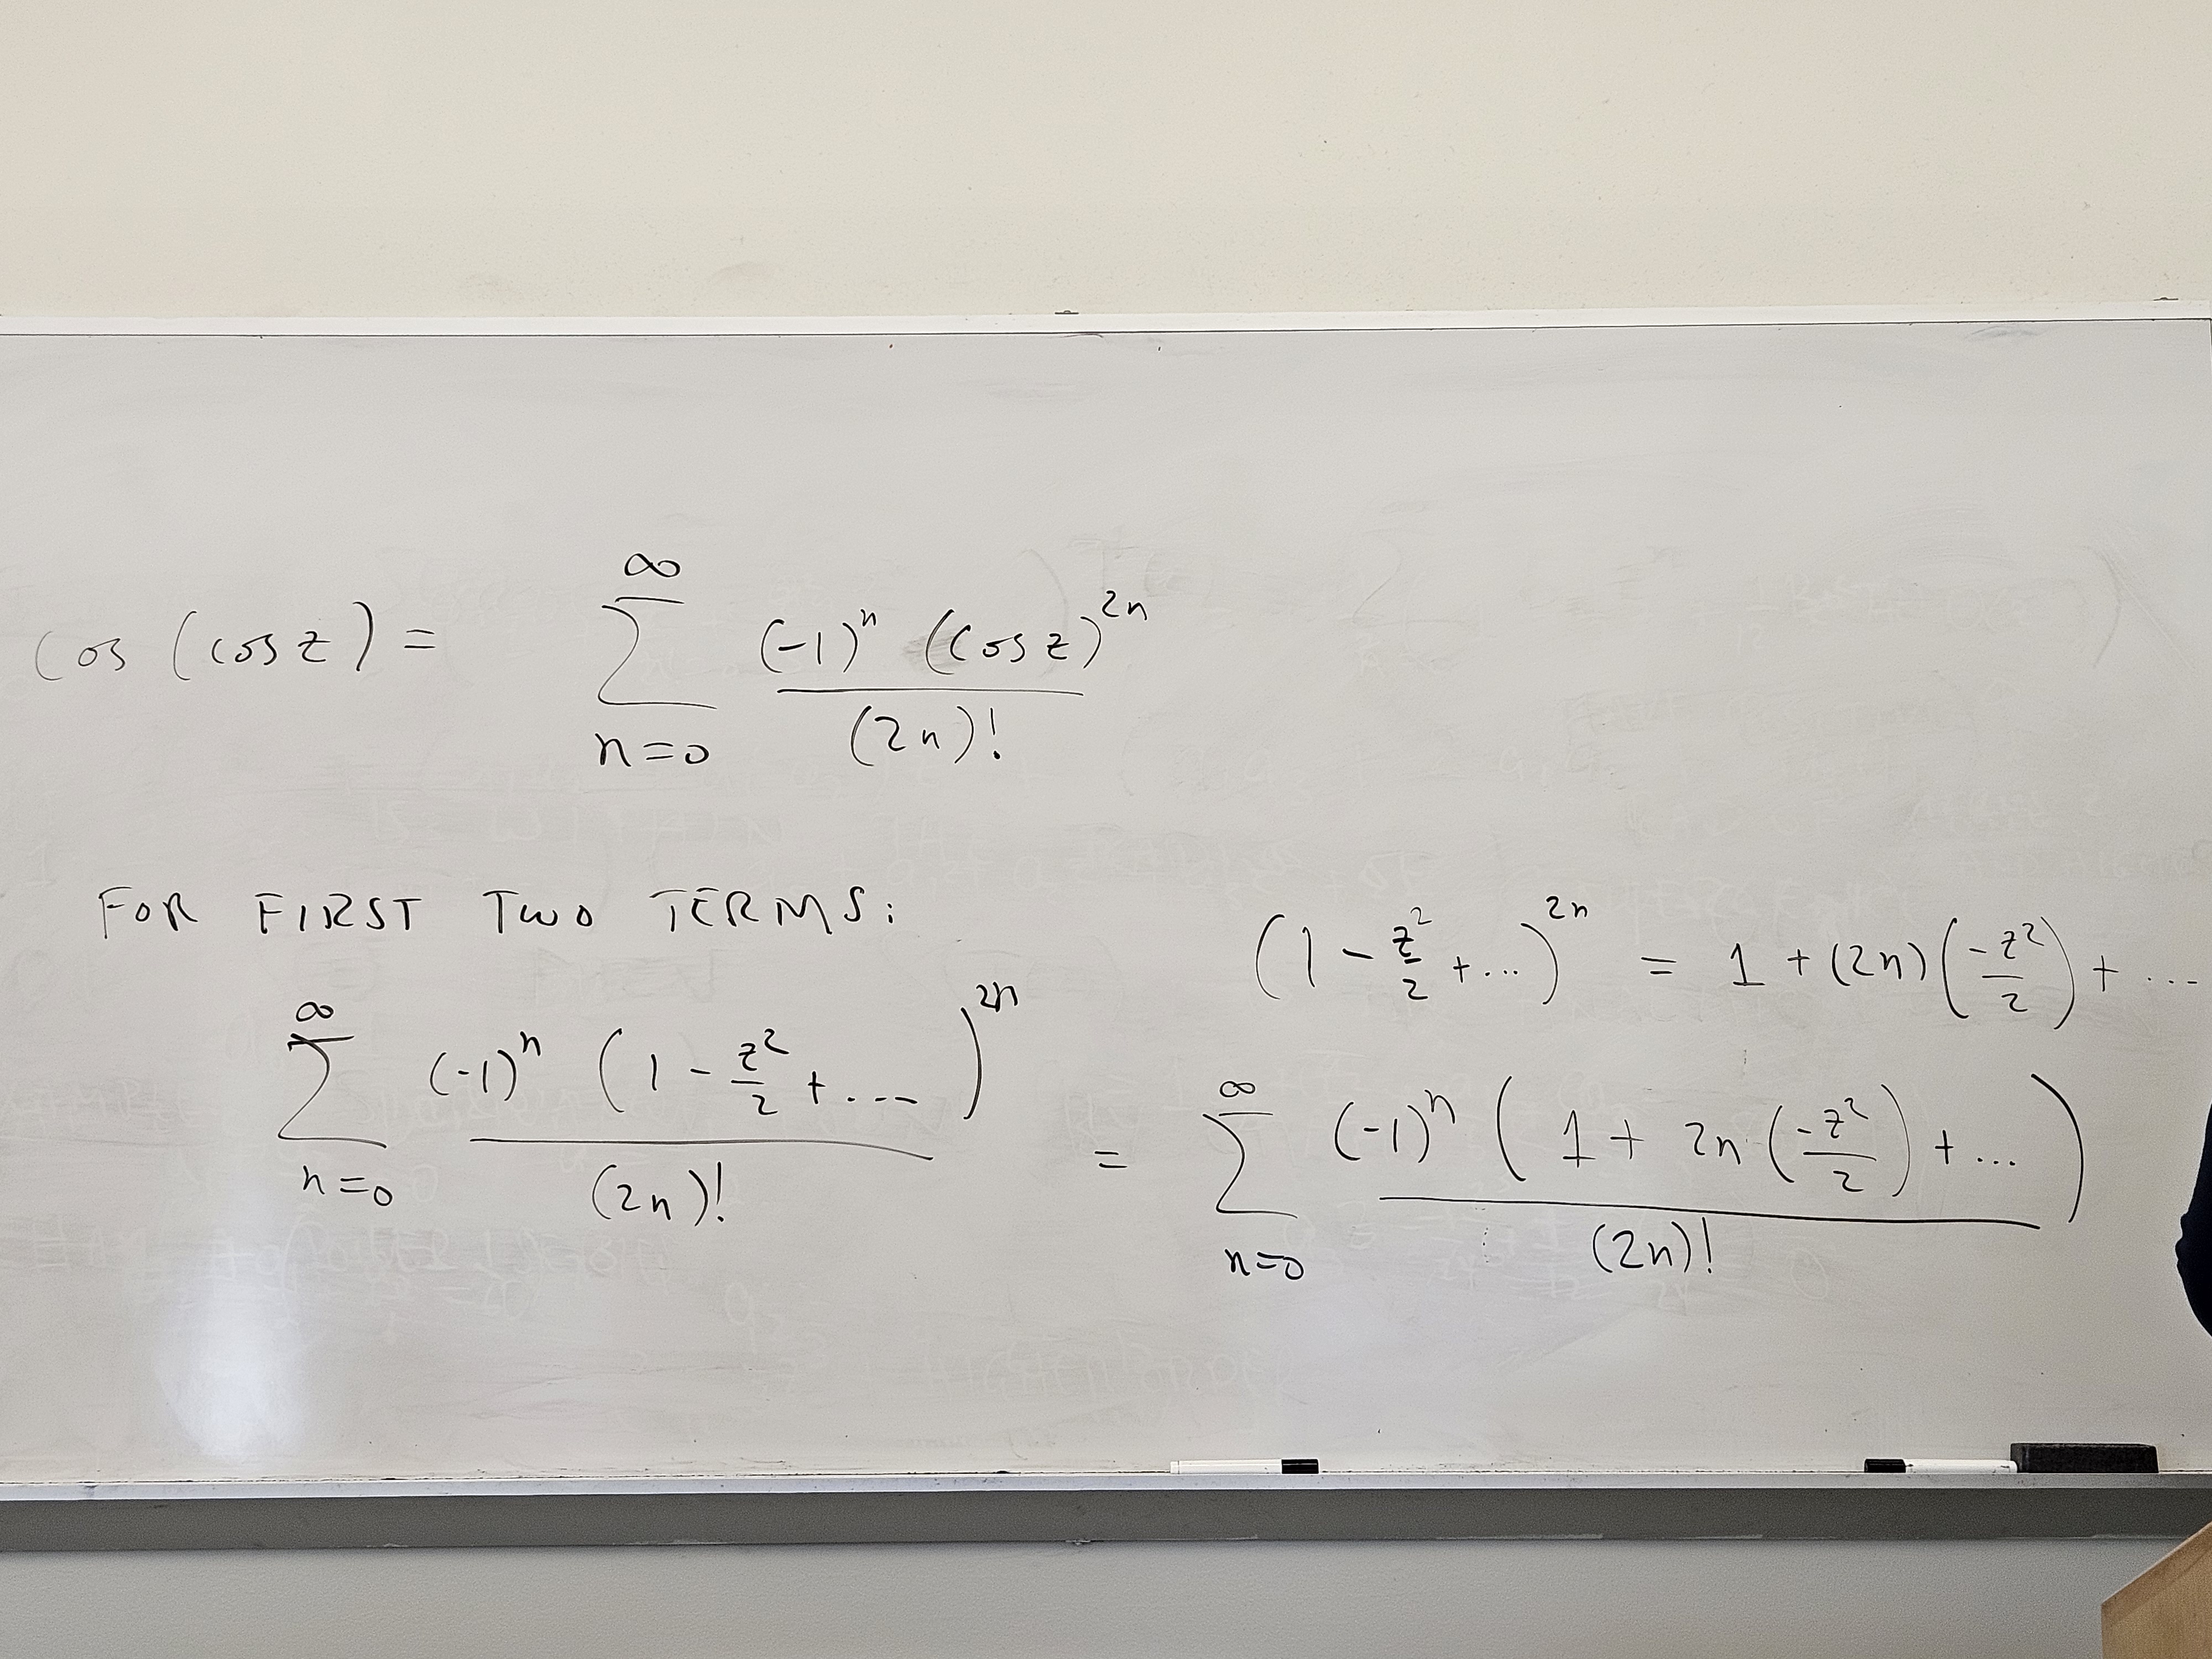 cos (cos z) = ∞ ∑ n=0 (-1)^n (cos z)^2n / (2n)!
FOR FIRST TWO TERMS:
(1 - z²/2 + ...)^2n = 1 + (2n)(-z²/2) + ...
∞ ∑ n=0 (-1)^n (1 - z²/2 + ....)^2n / (2n)! = ∞ ∑ n=0 (-1)^n (1 + 2n (-z²/2) + ...) / (2n)!